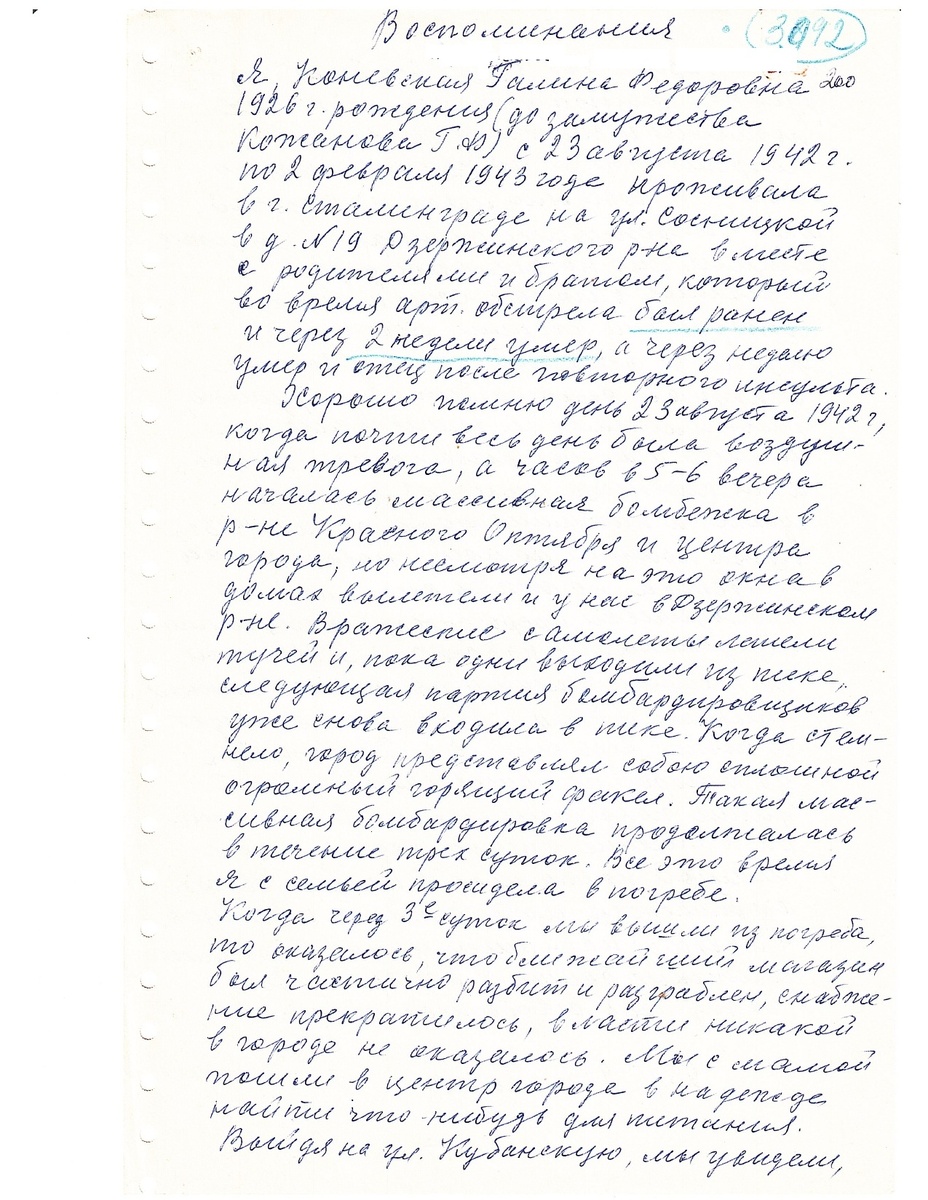 Воспоминания (3.092)
Я, Коневская Галина Федоровна 200
1926 г. рождения (до замужества
Кожанова Г.Ф) с 23 августа 1942 г.
по 2 февраля 1943 годе проживала
в г. Сталинграде на ул. Сосницкой
в д. №19 Дзержинского р-на вместе
с родителями и братом, который
во время арт. обстрела был ранен
и через 2 недели умер, а через неделю
умер и отец после повторного инсульта.
Хорошо помню день 23 августа 1942 г,
когда почти весь день была воздуш-
ная тревога, а часов в 5-6 вечера
началась массивная бомбежка в
р-не Красного Октября и центра
города, но несмотря на это окна в
домах вылетели и у нас в Дзержинском
р-не. Вражеские самолеты летели
тучей и, пока одни выходили из пике,
следующая партия бомбардировщиков
уже снова входила в пике. Когда стем-
нело, город представлял собою сплошной
огромный горящий факел. Такая мас-
сивная бомбардировка продолжалась
в течение трех суток. Все это время
я с семьей просидела в погребе.
Когда через 3е суток мы вышли из погреба,
то оказалось, что ближайший магазин
был частично разбит и разграблен, снабже-
ние прекратилось, власти никакой
в городе не оказалось. Мы с мамой
пошли в центр города в надежде
найти что-нибудь для питания.
Выйдя на ул. Кубанскую, мы увидели,